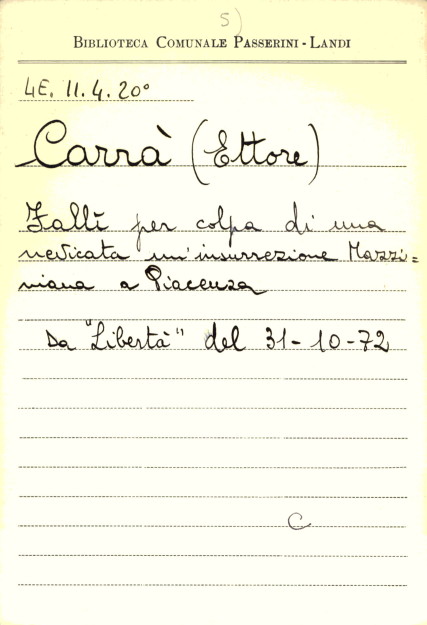 5)
BIBLIOTECA COMUNALE PASSERINI - LANDI
4E. 11. 4. 20°
Carrà (Ettore)
Fallì per colpa di una
nevicata un'insurrezione Mazzi=
niana a Piacenza
Da "Libertà" del 31-10-72
C